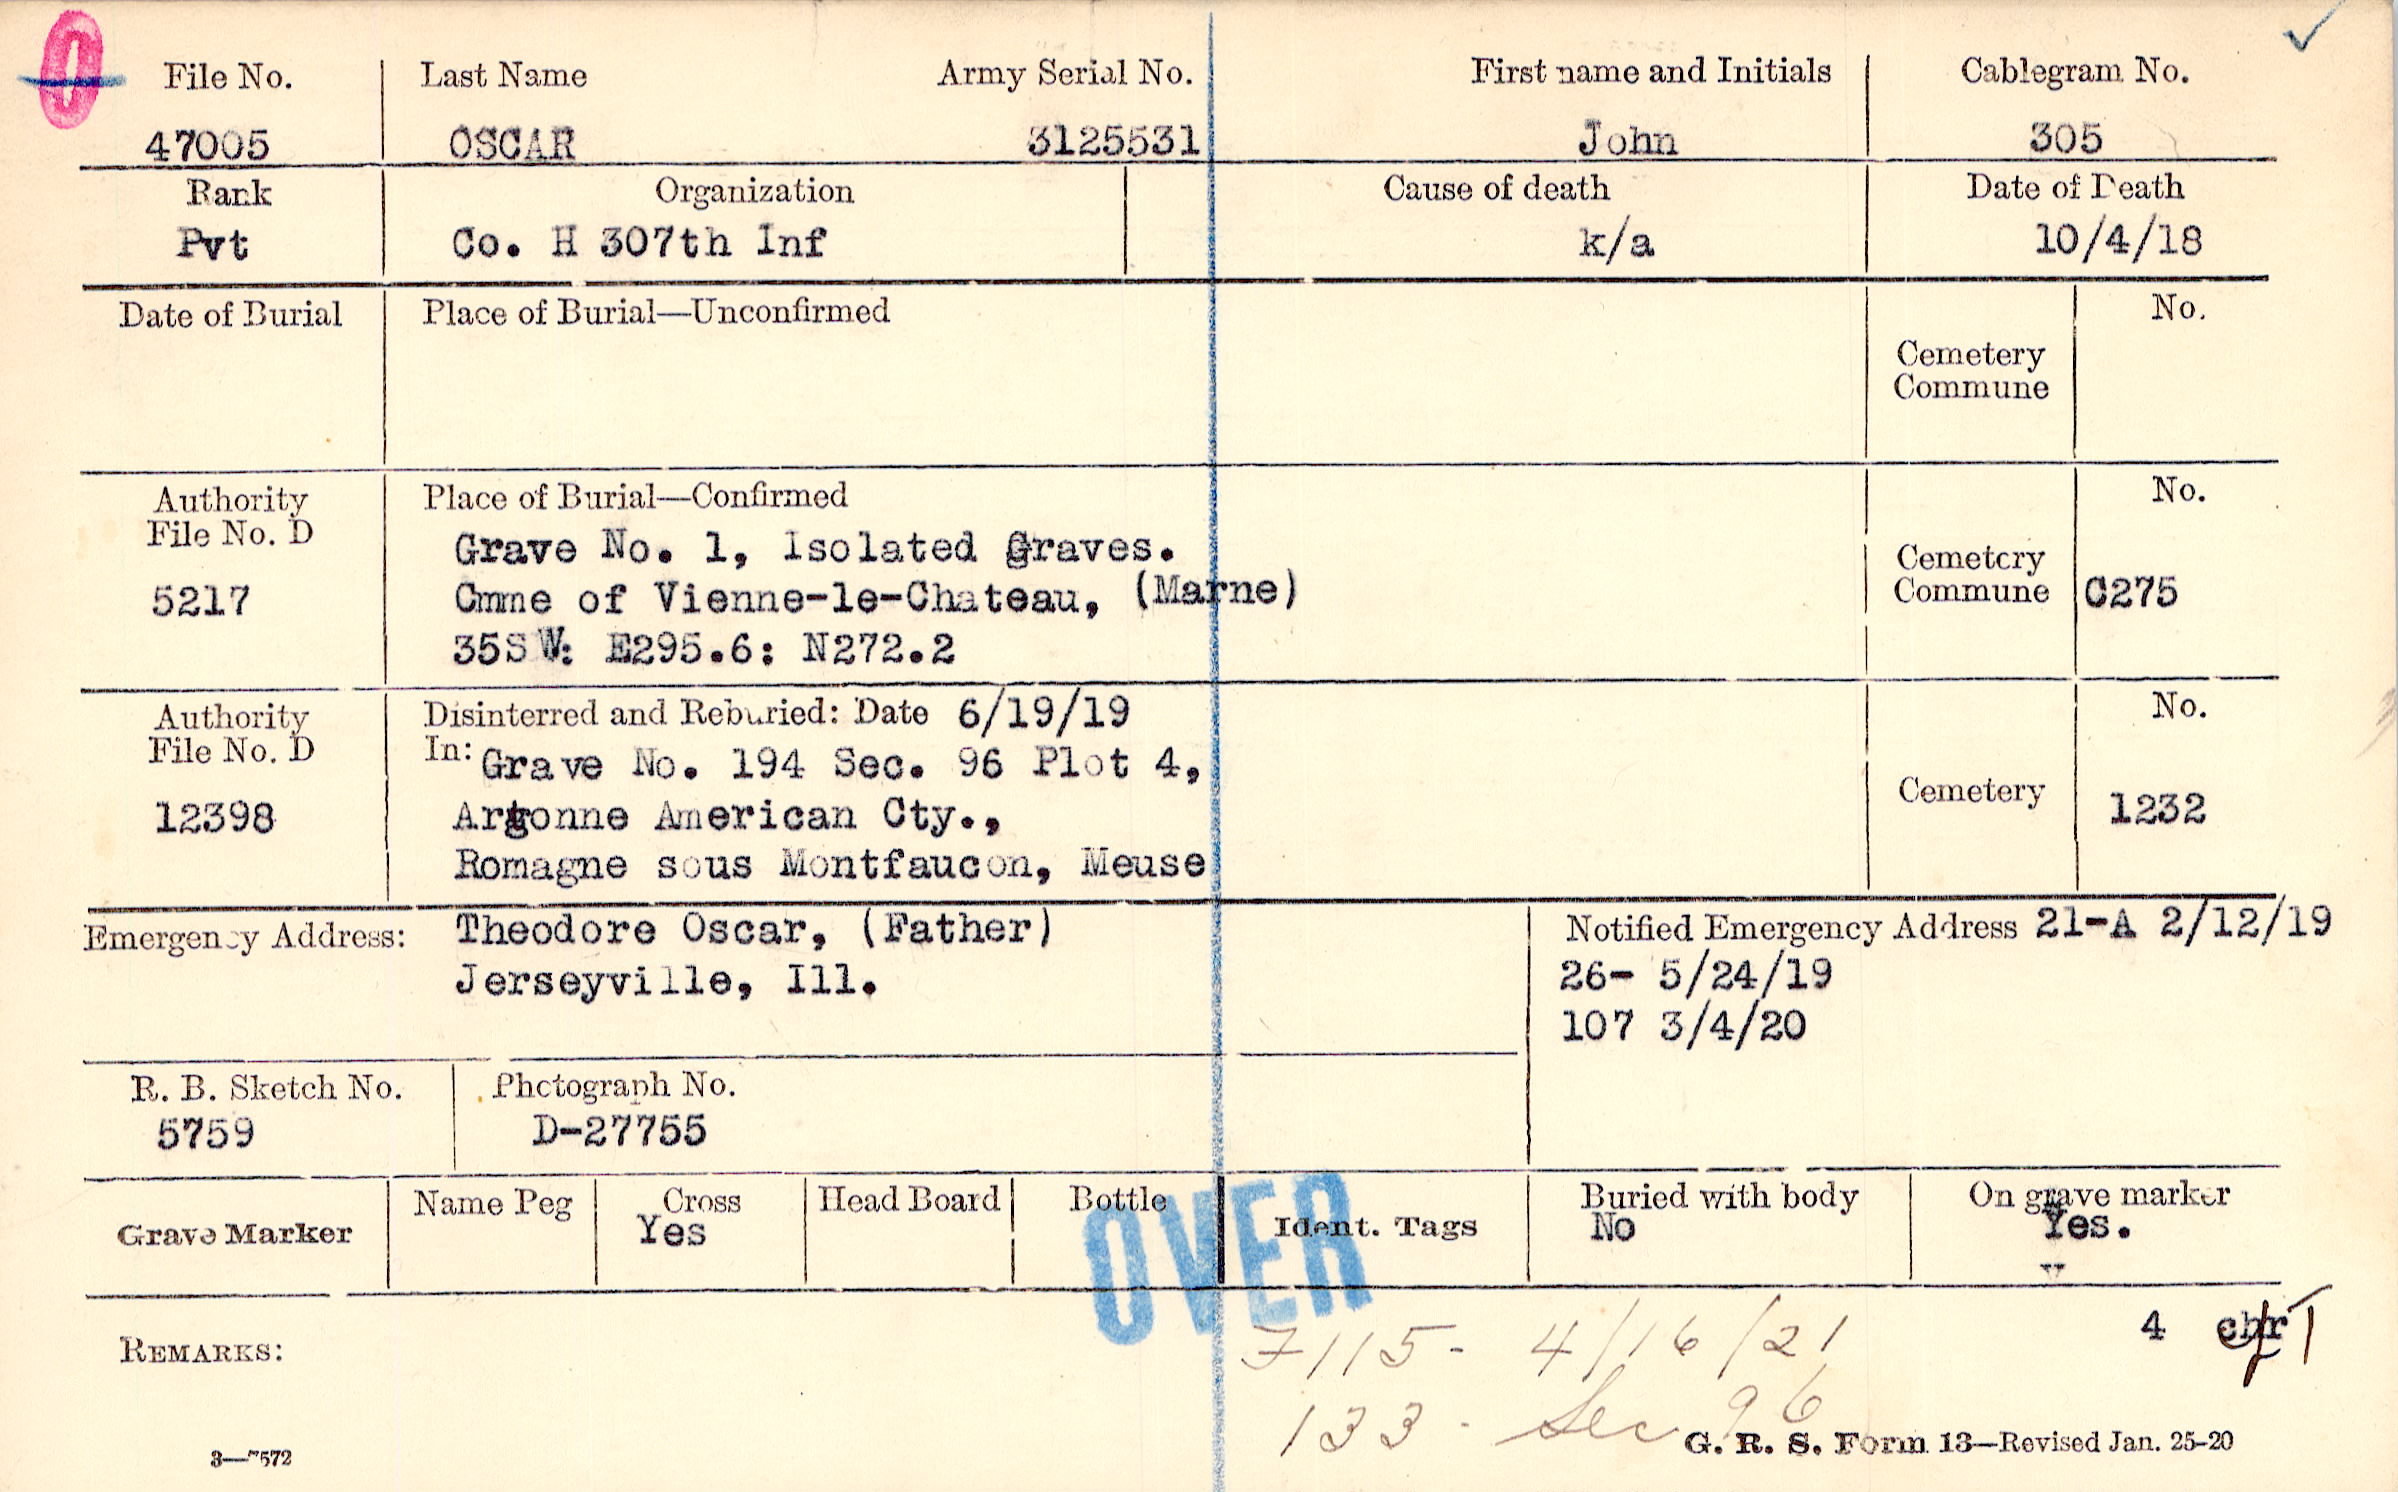 O
File No. Last Name Army Serial No. First name and Initials Cablegram No.
47005 OSCAR 3125531 John 305
Rank Organization Cause of death Date of Death
Pvt Co. H 307th Inf k/a 10/4/18
Date of Burial Place of Burial—Unconfirmed No.
Cemetery
Commune
Authority Place of Burial—Confirmed No.
File No. D
Grave No. 1, Isolated Graves.
5217 Cmme of Vienne-le-Chateau, (Marne) Cemetery
Commune C275
35SW: E295.6: N272.2
Authority Disinterred and Reburied: Date 6/19/19 No.
File No. D In: Grave No. 194 Sec. 96 Plot 4,
12398 Argonne American Cty., Cemetery 1232
Romagne sous Montfaucon, Meuse
Emergency Address: Theodore Oscar, (Father) Notified Emergency Address 21-A 2/12/19
Jerseyville, Ill. 26- 5/24/19
107 3/4/20
R. B. Sketch No. Photograph No.
5759 D-27755
Grave Marker Name Peg Cross Head Board Bottle Ident. Tags Buried with body On grave marker
Yes No Yes.
OVER
4 chr
REMARKS: 7115- 4/16/21
133 - Sec 96
3—7572 G. R. S. Form 13—Revised Jan. 25-20